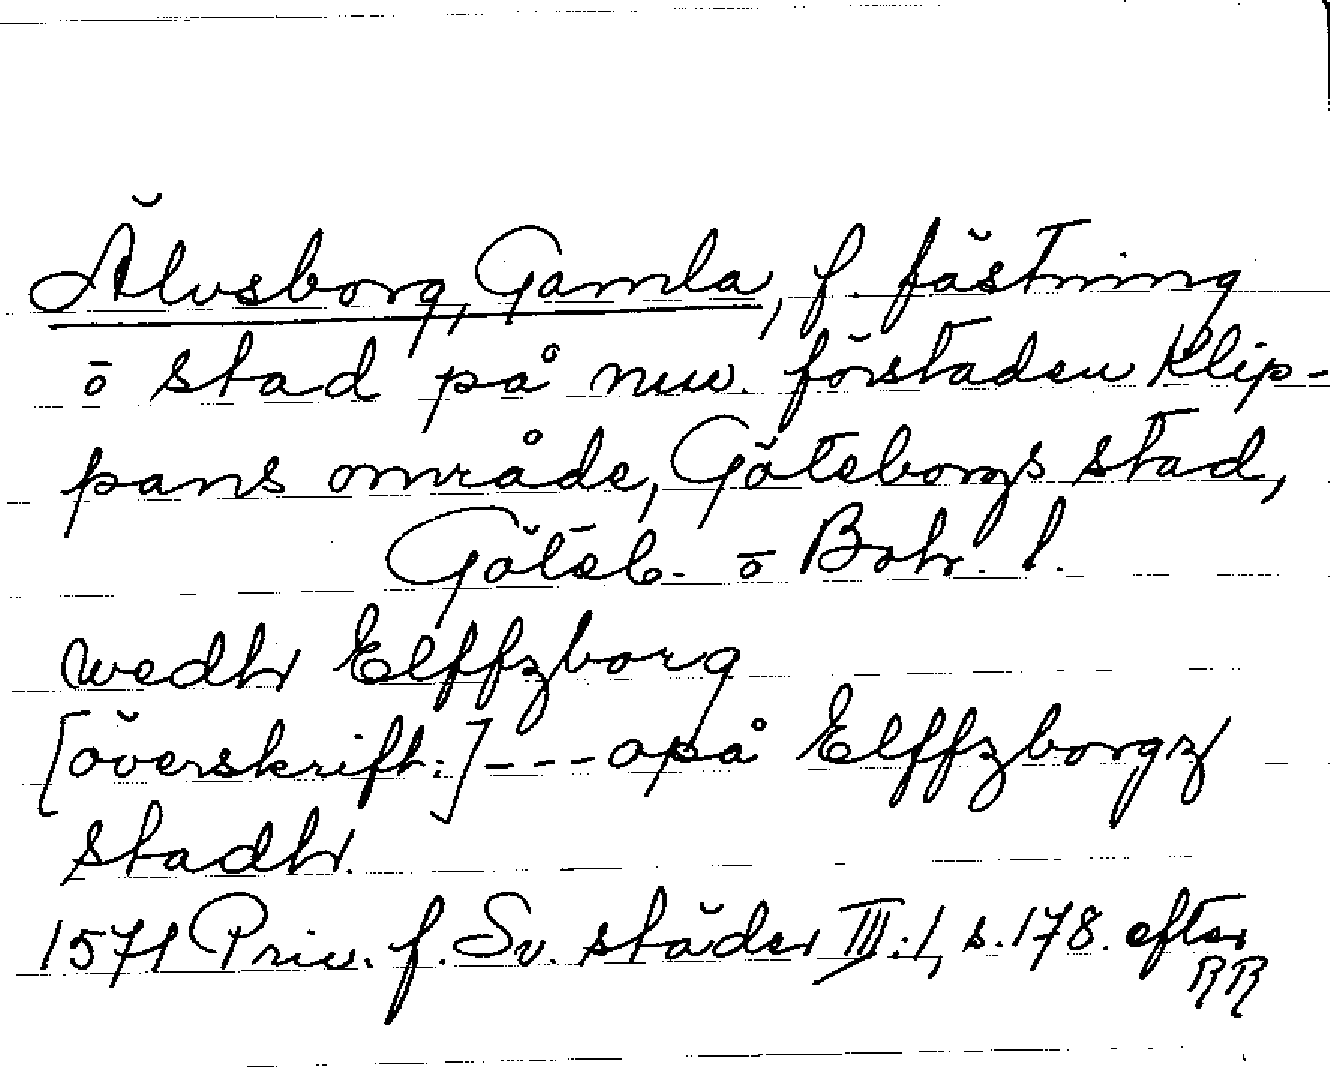 Älvsborg, Gamla, f. fästning
o stad på nuv. förstaden Klip-
pans område, Göteborgs stad,
Göteb. o Boh. l.
wedh Elffzborg
[överskrift:] --- opå Elffzborgz
stadh.
1571 Priv. f. Sv. städer III:1, s. 178. efter
RR